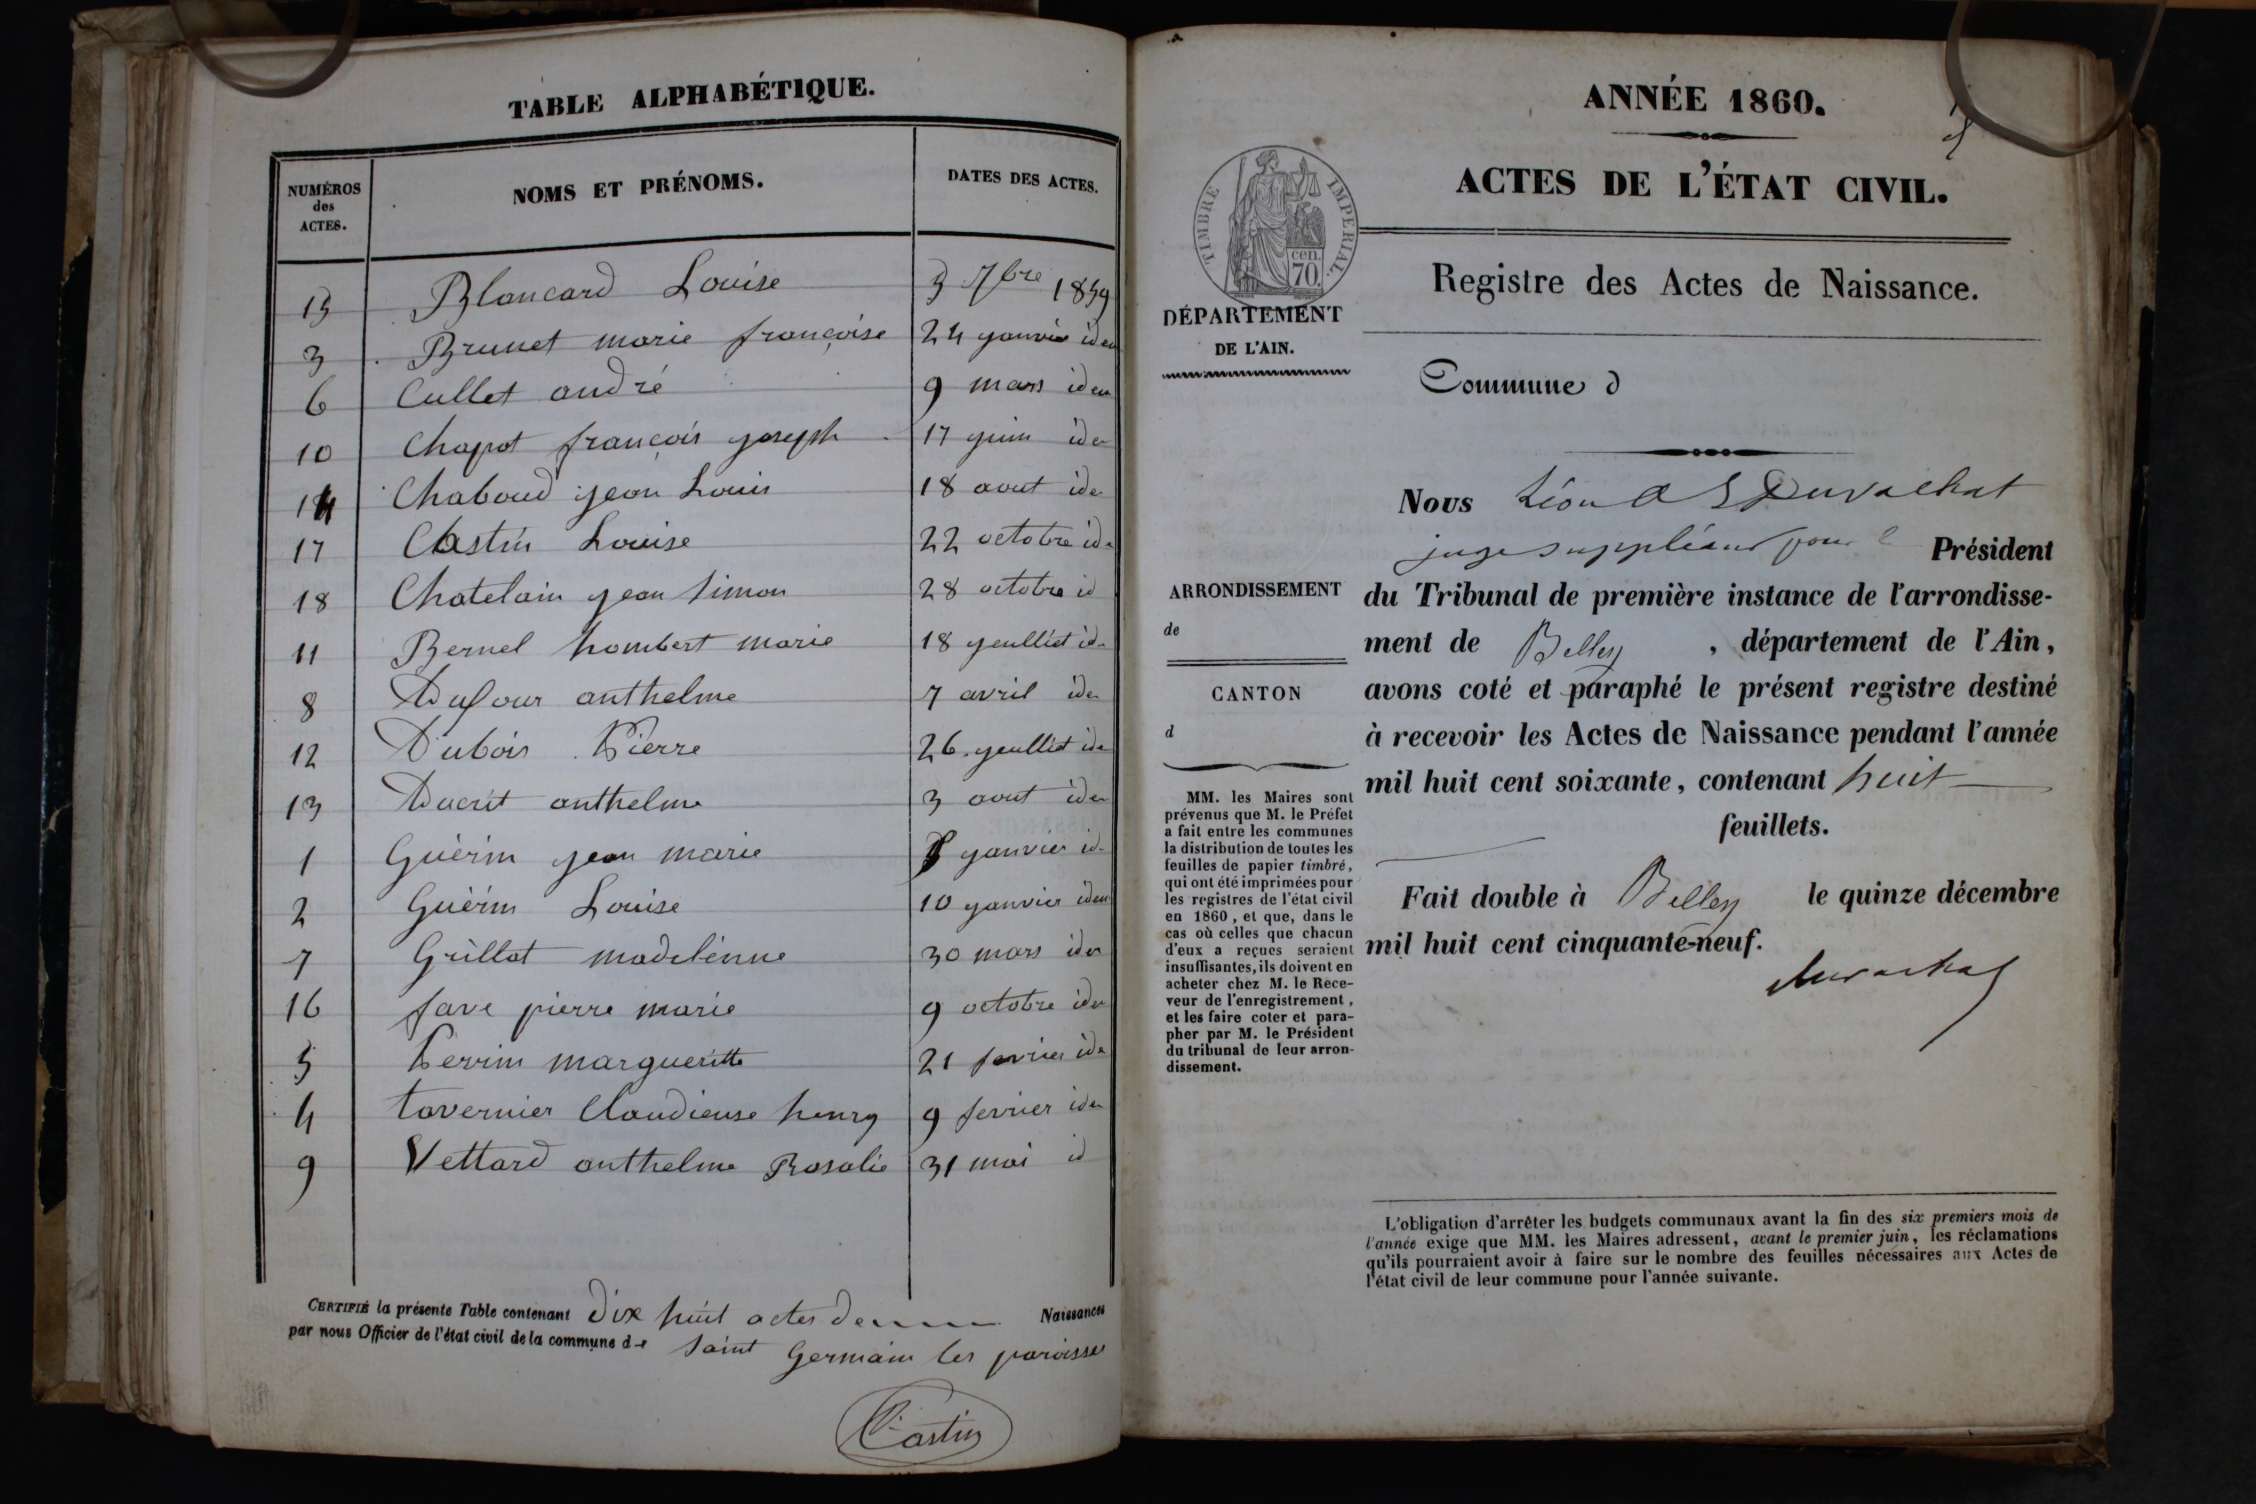 TABLE ALPHABÉTIQUE.
NUMÉROS des ACTES. NOMS ET PRÉNOMS. DATES DES ACTES.
15 Blancard Louise 3 7bre 1859
3 Brunet marie françoise 24 yanvier idem
6 Cullet andré 9 mars idem
10 Chapot françois yoseph 17 yuin ide
14 Chaboud yean Louis 18 aout ide
17 Castin Louise 22 octobre id
18 Chatelain yean Simon 28 octobre id
11 Bernel hombert marie 18 yeulliet id
8 Dufour anthelme 7 avril ide
12 Dubois Pierre 26 yeulliet ide
13 Ducrit anthelme 3 aout ide
1 Guèrin yean marie yanvier id
2 Guèrin Louise 10 yanvier idem
7 Grillot madelènne 30 mars ide
16 fave pierre marie 9 octobre ide
5 Perrin margueritte 21 fevrier ide
4 tavernier Claudieuse henry 9 fevrier ide
9 Vettard anthelme Rosalie 31 mai id
CERTIFIÉ la présente Table contenant Dix huit actes de Naissances
par nous Officier de l'état civil de la commune de Saint Germain les paroisses
Castin
ANNÉE 1860.
ACTES DE L'ÉTAT CIVIL.
TIMBRE IMPÉRIAL.
cen.
70.
Registre des Actes de Naissance.
DÉPARTEMENT
DE L'AIN.
Commune d
Nous Léon Duvachat
juge suppléant pour le Président
ARRONDISSEMENT
de
CANTON
d
du Tribunal de première instance de l'arrondisse-
ment de Belley, département de l'Ain,
avons coté et paraphé le présent registre destiné
à recevoir les Actes de Naissance pendant l'année
mil huit cent soixante, contenant huit
feuillets.
Fait double à Belley le quinze décembre
mil huit cent cinquante-neuf.
Duvachat
MM. les Maires sont
prévenus que M. le Préfet
a fait entre les communes
la distribution de toutes les
feuilles de papier timbré,
qui ont été imprimées pour
les registres de l'état civil
en 1860, et que, dans le
cas où celles que chacun
d'eux a reçues seraient
insuffisantes, ils doivent en
acheter chez M. le Rece-
veur de l'enregistrement,
et les faire coter et para-
pher par M. le Président
du tribunal de leur arron-
dissement.
L'obligation d'arrêter les budgets communaux avant la fin des six premiers mois de
l'année exige que MM. les Maires adressent, avant le premier juin, les réclamations
qu'ils pourraient avoir à faire sur le nombre des feuilles nécessaires aux Actes de
l'état civil de leur commune pour l'année suivante.